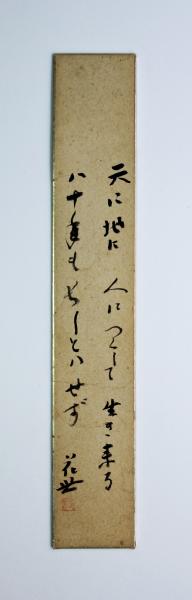 天に地に 人につくして 生き来る
八十年も ながしとハせず 花世